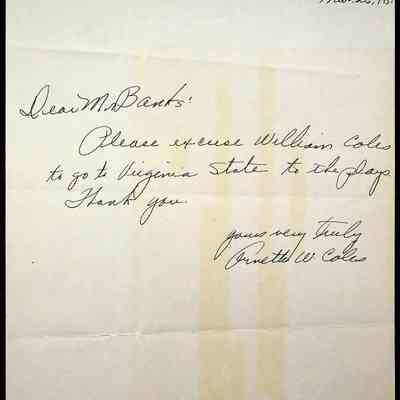 Dear Mr Banks:
Please excuse William Coles
to go to Virginia State to the plays
Thank you.
yours very truly
Ornetta W. Coles